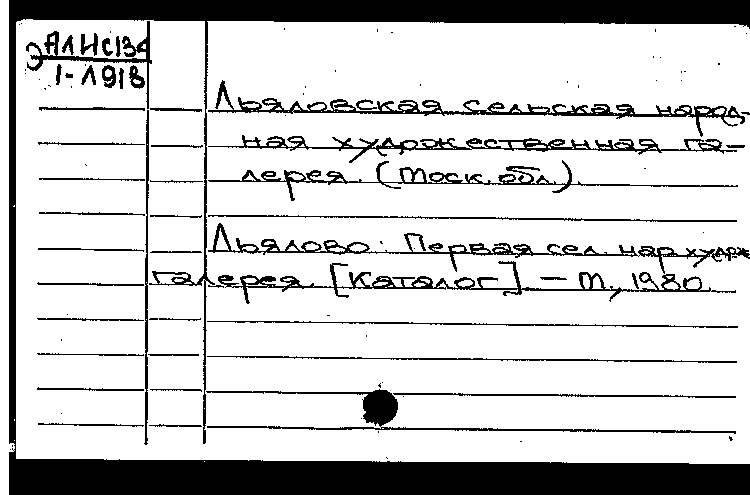 ЭАлНс134
1-Л918
Льяловская сельская народ-
ная художественная га-
лерея. (Моск. обл.).
Льялово: Первая сел. нар худож
галерея. [Каталог]. - М., 1980.